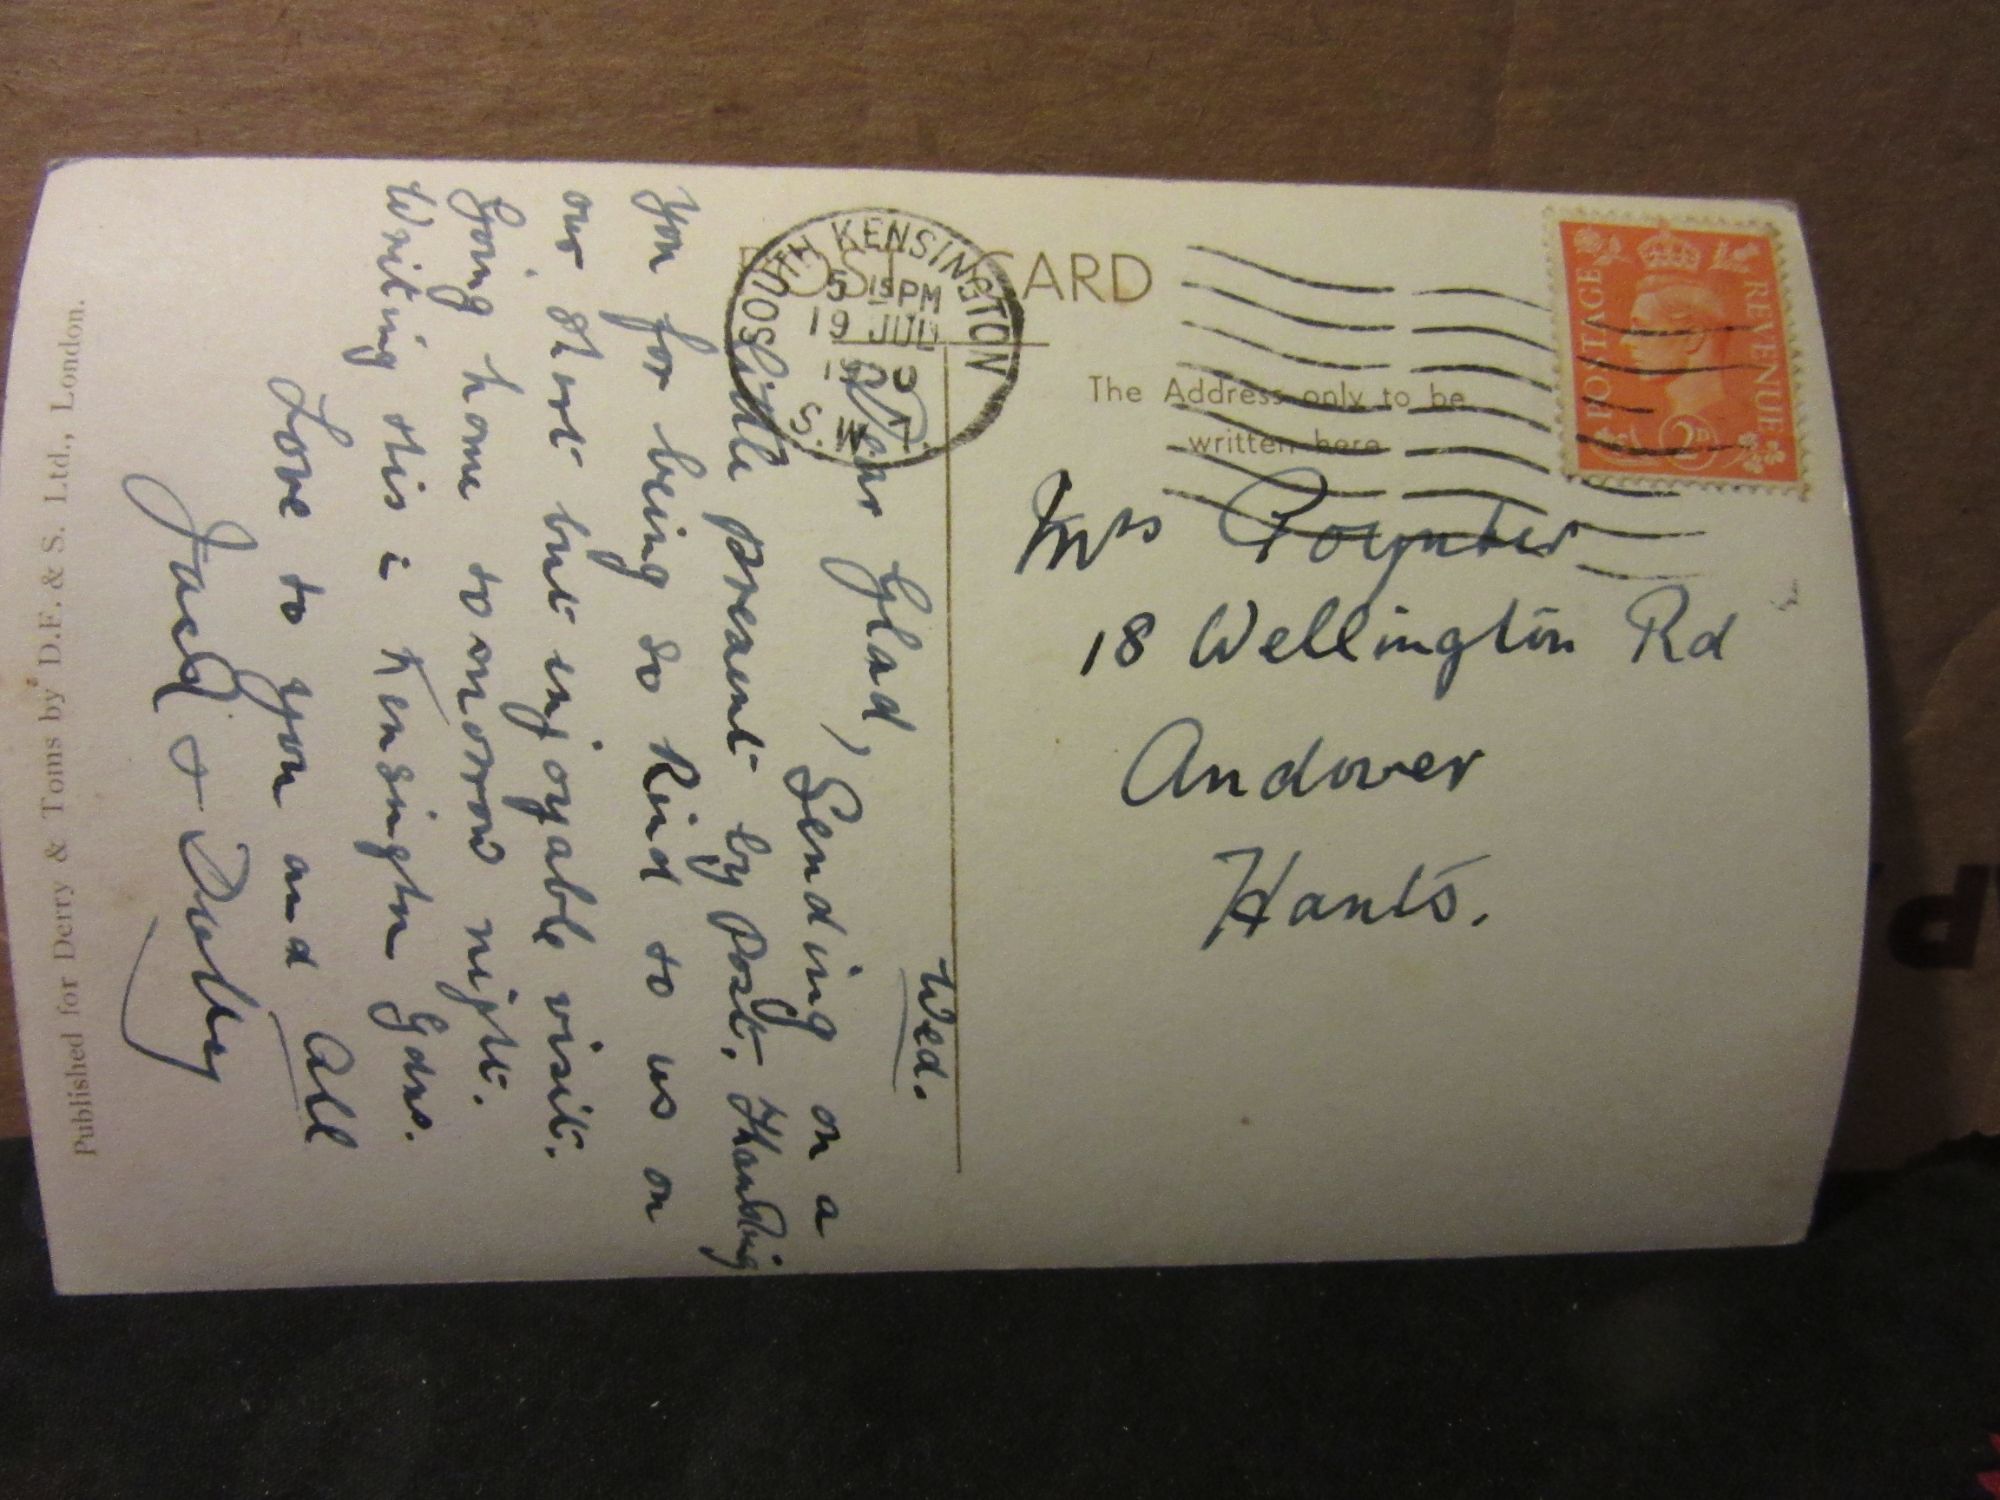 POST CARD
The Address only to be
written here
SOUTH KENSINGTON
5 15 PM
19 JUL
S.W.7.
POSTAGE REVENUE
2D
Mrs Poynter
18 Wellington Rd
Andover
Hants.
Wed.
Dear Glad, Sending on a
little present by Post. Thanking
you for being so kind to us on
our short but enjoyable visit.
Going home tomorrow night.
Writing this in Kensington Gdns.
Love to you and All
Jack + Dolly
Published for Derry & Toms by D.F. & S. Ltd., London.